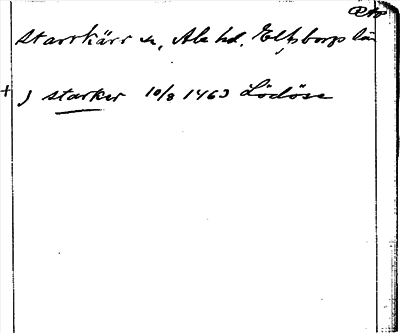 Starrkärr sn, Ale hd. Elfsborgs län
+ J starker 10/8 1463 Lödöse